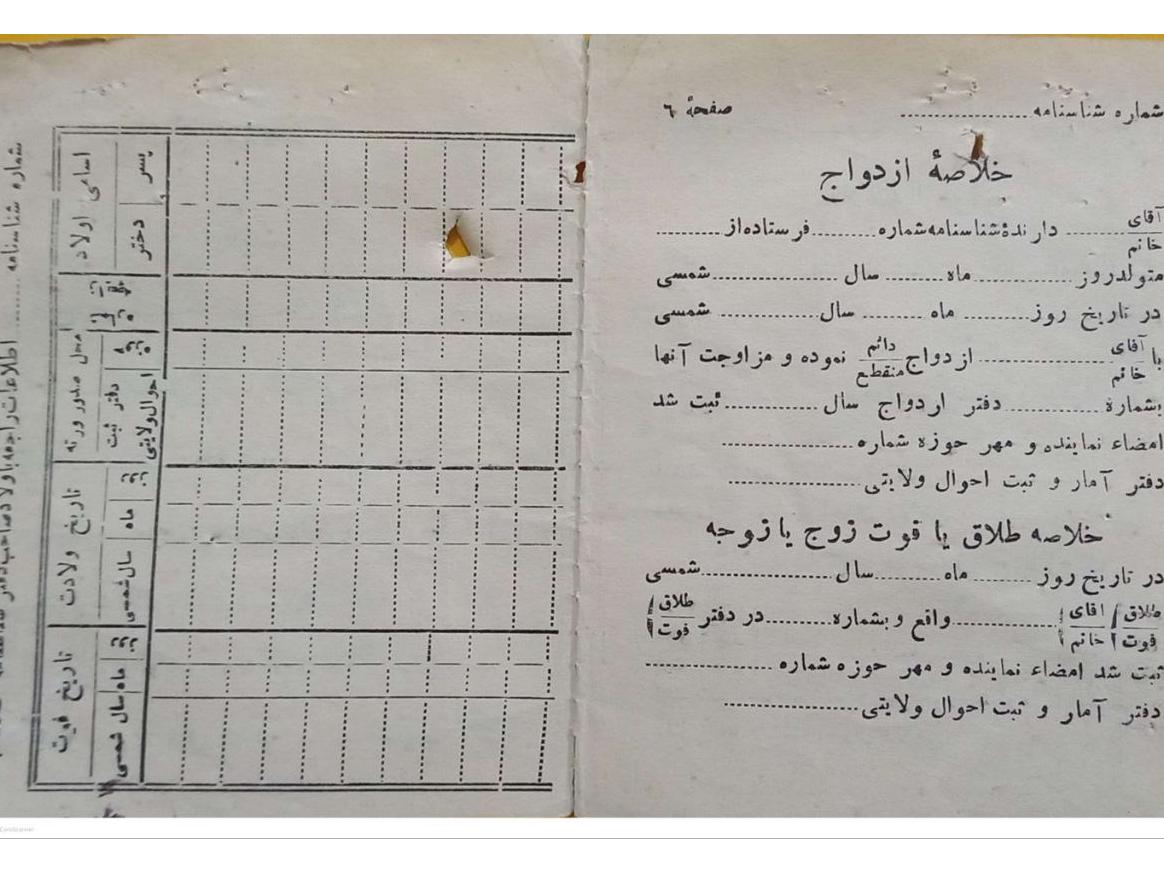 شماره شناسنامه............ صفحهٔ ٦
خلاصهٔ ازدواج
آقای
خانم ............ دارندهٔ شناسنامه شماره............ فرستاده از............
متولد روز............ ماه............ سال............ شمسی
در تاریخ روز............ ماه............ سال............ شمسی
با آقای
خانم ............ ازدواج دائم
منقطع نموده و مزاوجت آنها
بشماره............ دفتر اردواج سال............ ثبت شد
امضاء نماینده و مهر حوزه شماره............
دفتر آمار و ثبت احوال ولایتی............
خلاصه طلاق یا فوت زوج یا زوجه
در تاریخ روز............ ماه............ سال............ شمسی
طلاق
فوت آقای
خانم ............ واقع و بشماره............ در دفتر طلاق
فوت
ثبت شد امضاء نماینده و مهر حوزه شماره............
دفتر آمار و ثبت احوال ولایتی............
شماره شناسنامه............ اطلاعات راجعه باولاد صاحب
اسامی اولاد
پسر
دختر
محل صدور ورقه
دفتر ثبت
احوال ولایتی
تاریخ ولادت
ماه
سال شمسی
تاریخ فوت
ماه
سال شمسی
CamScanner